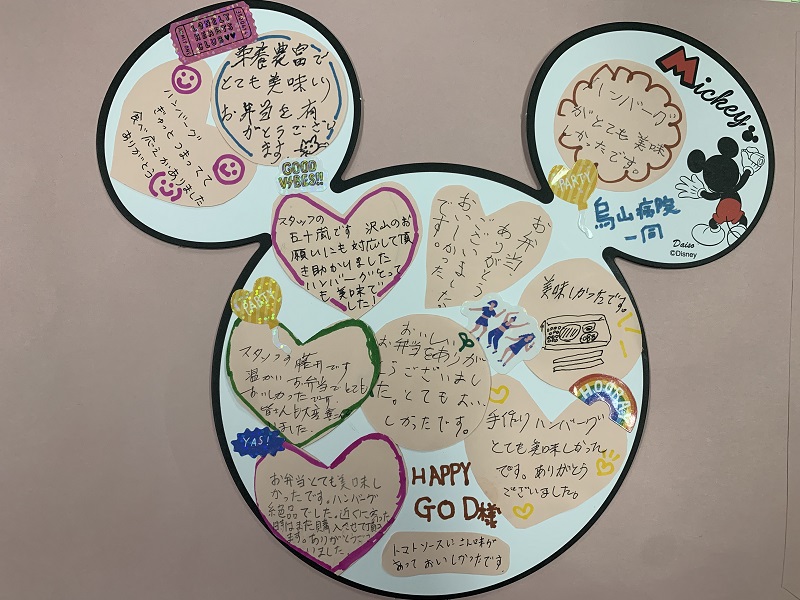 LONELY
HEARTS
CLUB
栄養豊富で
とても美味しい
お弁当を有
がとうござい
ます
ハンバーグ
ぎゅっとつまってて
食べ応えがありました
ありがとう
GOOD
VIBES!!
ハンバーグ
がとても美味
しかったです。
Mickey
PARTY
烏山病院
一同
Daiso
©Disney
スタッフの
五十嵐です 沢山のお
願いにも対応して頂
き助かりました
ハンバーグとって
も美味で
した!
お弁当、
ありがとう
ございました
おいしかった
です。
美味しかったです。
PARTY
スタッフの
温かいお弁当でとても
おいしかったです
皆さんも大変
ました。
おいしい
お弁当をありが
とうございまし
た。とてもおい
しかったです。
HOORAY
手作りハンバーグ
とても美味しかった
です。ありがとう
ございました。
YAS!
お弁当とても美味し
かったです。ハンバーグ
絶品でした。近くに
時はまた購入させて頂き
ます。ありがとうござ
いました。
HAPPY
GOD様
トマトソースに
あって おいしかったです。